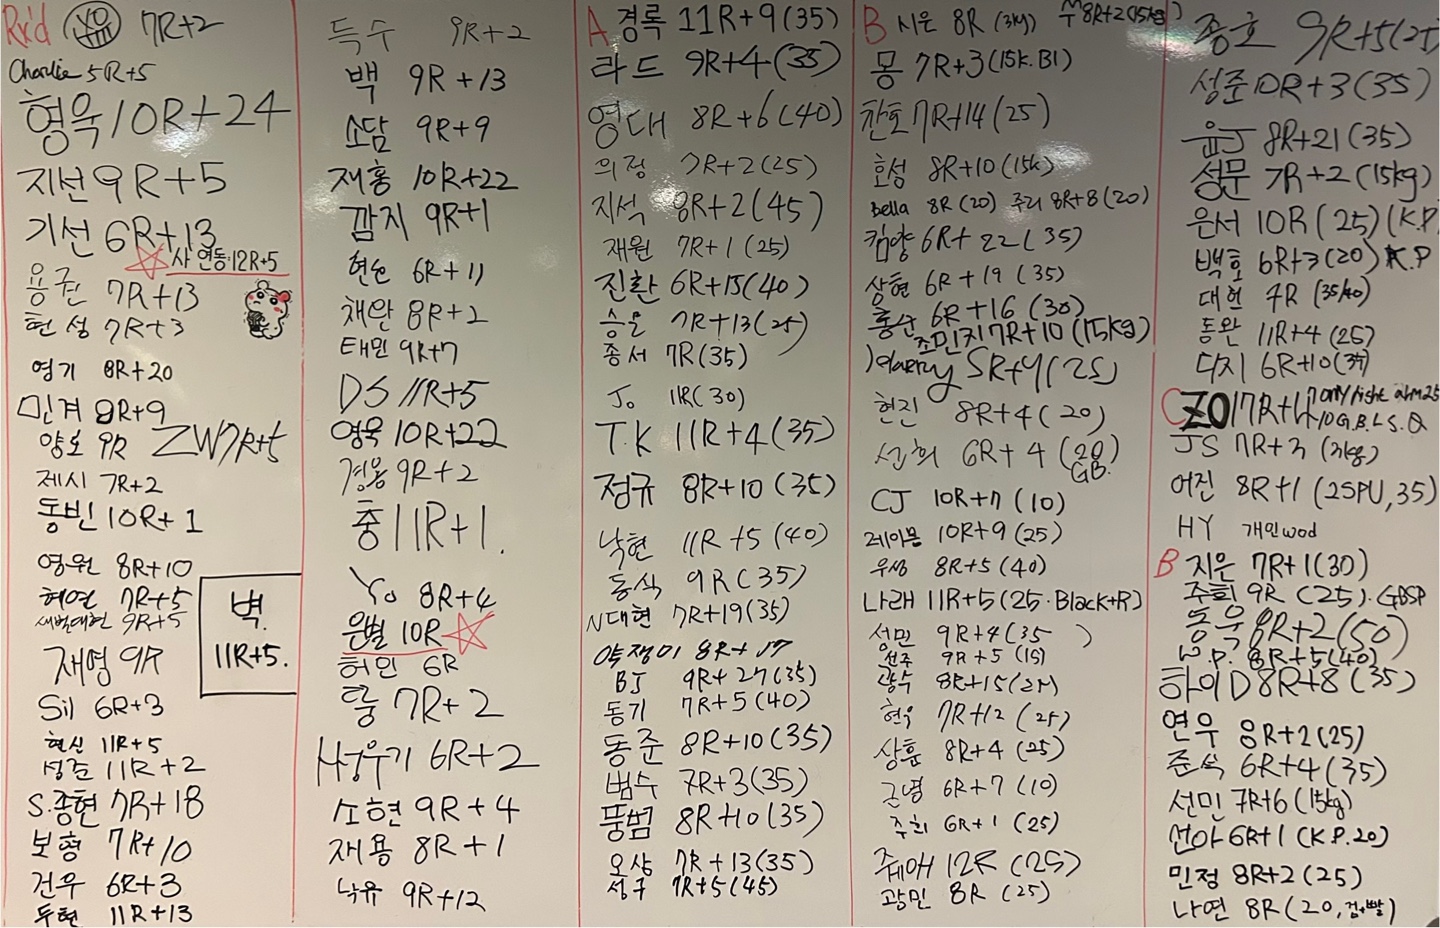 Rx'd YO 7R+2
Charlie 5R+5
형욱 10R+24
지선 9R+5
기선 6R+13
사 연동:12R+5
용권 7R+13
현성 7R+3
영기 8R+20
민계 8R+9
양보 9R ZW 7R+5
제시 7R+2
동빈 10R+1
영원 8R+10
혜연 7R+5
새벽대현 9R+5
벽.
11R+5.
재영 9R
Sil 6R+3
현신 11R+5
성준 11R+2
S.종현 7R+18
보형 7R+10
건우 6R+3
두현 11R+13
득수 9R+2
백 9R+13
소담 9R+9
재홍 10R+22
깜지 9R+1
현순 6R+11
채완 8R+2
태민 9R+7
DS 11R+5
영욱 10R+22
경용 9R+2
충 11R+1.
Yo 8R+4
은별 10R
허인 6R
훌 7R+2
6R+2
소현 9R+4
재용 8R+1
낙유 9R+12
A 경록 11R+9(35)
라드 9R+4(35)
영대 8R+6(40)
의정 7R+2(25)
지석 8R+2(45)
재원 7R+1(25)
진환 6R+15(40)
승윤 7R+13(25)
종서 7R(35)
Jo 11R(30)
T.K 11R+4(35)
정규 8R+10(35)
낙현 11R+5(40)
동식 9R(35)
N대현 7R+19(35)
약쟁이 8R+17
BJ 9R+27(35)
동기 7R+5(40)
동준 8R+10(35)
범수 7R+3(35)
풍범 8R+10(35)
오상 7R+13(35)
성구 7R+5(45)
B 시온 8R 8R+2(15kg)
몽 7R+3(15k.B1)
찬호 7R+14(25)
효성 8R+10(15k)
Bella 8R(20) 주리 8R+8(20)
킴양 6R+22(35)
상현 6R+19(35)
룡산 6R+16(30)
조민지 7R+10(15kg)
Harry 5R+4(25)
현진 8R+4(20)
선희 6R+4(20)
GB.
CJ 10R+7(10)
제이븐 10R+9(25)
우성 8R+5(40)
나래 11R+5(25.Black+R)
성민 9R+4(35)
선주 9R+5(15)
광수 8R+15
현우 7R+12(25)
상훈 8R+4(25)
근영 6R+7(10)
주희 6R+1(25)
쥬애 12R(25)
광민 8R(25)
종호 9R+5(25)
성준 10R+3(35)
윤J 8R+21(35)
성문 7R+2(15kg)
은서 10R(25)(K.P
백호 6R+3(20)K.P
대현 7R(35/40)
동완 11R+4(25)
디지 6R+10(35)
C ZO only right arm25
10G.B.L.S.Q
JS 7R+3
어진 8R+1(25PU,35)
HY 개인wod
B 지은 7R+1(30)
주희 9R(25).GBSP
동욱 8R+2(50)
W.P. 8R+5(40)
하이D 8R+8(35)
연우 8R+2(25)
준석 6R+4(35)
선민 7R+6(15kg)
선아 6R+1(K.P.20)
민정 8R+2(25)
나연 8R(20,검+빨)